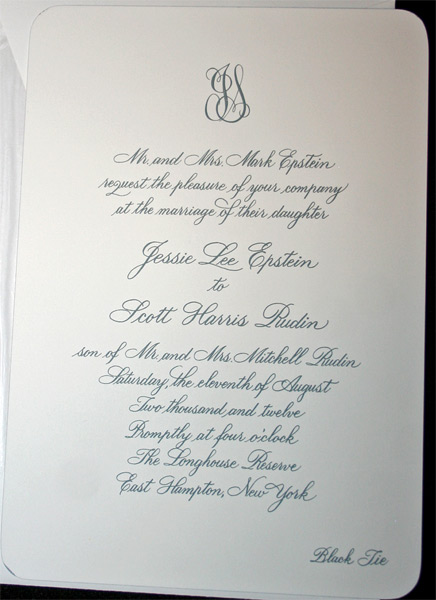 JS
Mr. and Mrs. Mark Epstein
request the pleasure of your company
at the marriage of their daughter
Jessie Lee Epstein
to
Scott Harris Rudin
son of Mr. and Mrs. Mitchell Rudin
Saturday, the eleventh of August
Two thousand and twelve
Promptly at four o'clock
The Longhouse Reserve
East Hampton, New York
Black Tie